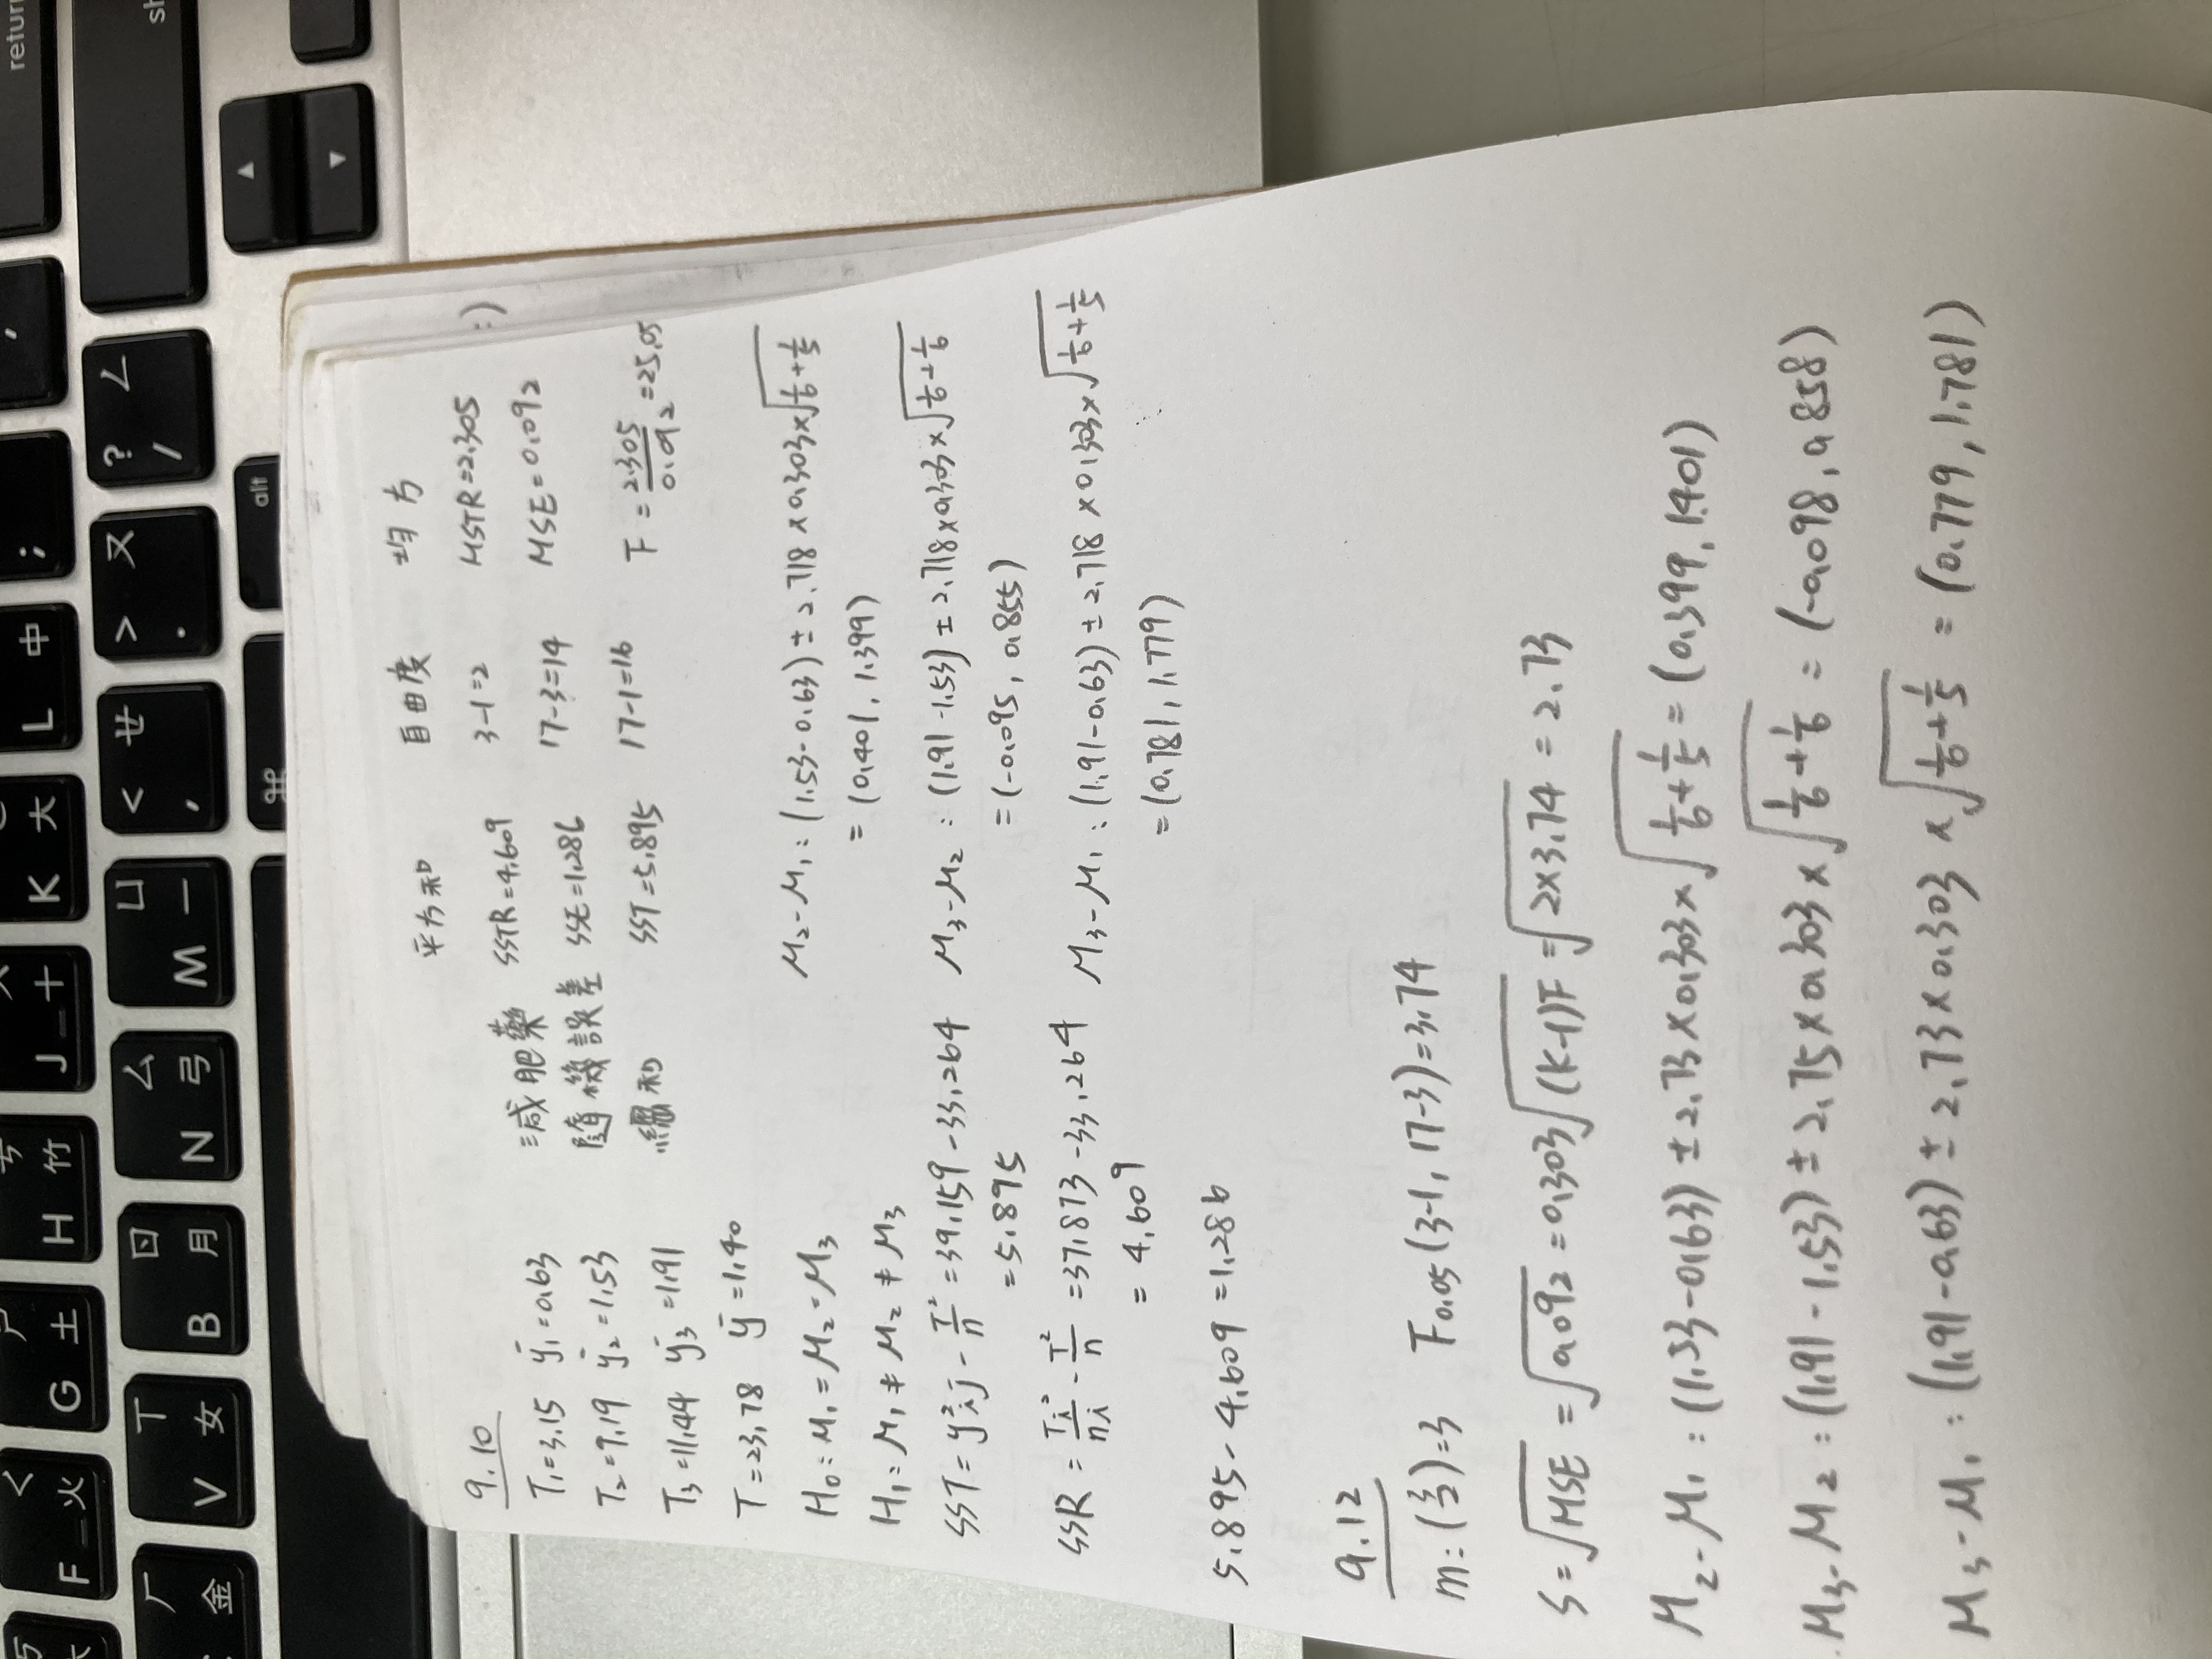 ㄎ 大
F ㄑ 火
G ㄕ 土
H ㄘ 竹
J 十
K 大
L 中
;
return
ㄏ 金
V ㄒ 女
B ㄖ 月
N ㄙ 弓
M ㄩ 一
< ㄝ ,
> ㄡ .
? ㄥ /
sh
⌘
alt
▲
▼
:)
9.10
T₁=3.15 ȳ₁=0.63
T₂=9.19 ȳ₂=1.53
T₃=11.44 ȳ₃=1.91
T=23.78 ȳ=1.40
H₀: μ₁=μ₂=μ₃
H₁: μ₁≠μ₂≠μ₃
SST = y²ij - T²/n = 39.159-33.264
=5.895
SSR = Ti²/ni - T²/n = 37.873-33.264
= 4.609
5.895-4.609=1.286
平方和 自由度 均方
減肥藥 SSTR=4.609 3-1=2 MSTR=2.305
隨機誤差 SSE=1.286 17-3=14 MSE=0.092
總和 SST=5.895 17-1=16 F = 2.305/0.092 = 25.05
μ₂-μ₁: (1.53-0.63) ± 2.718×0.303×√(1/6+1/5)
= (0.401, 1.399)
μ₃-μ₂: (1.91-1.53) ± 2.718×0.303×√(1/6+1/6)
= (-0.095, 0.855)
μ₃-μ₁: (1.91-0.63) ± 2.718×0.303×√(1/6+1/5)
= (0.781, 1.779)
9.12
m: (3/2)=3 F0.05(3-1, 17-3)=3.74
S=√MSE = √0.092 = 0.303 √(K-1)F = √2×3.74 = 2.73
μ₂-μ₁: (1.53-0.63) ± 2.73×0.303×√(1/6+1/5) = (0.399, 1.401)
μ₃-μ₂: (1.91-1.53) ± 2.75×0.303×√(1/6+1/6) = (-0.098, 0.858)
μ₃-μ₁: (1.91-0.63) ± 2.73×0.303×√(1/6+1/5) = (0.779, 1.781)